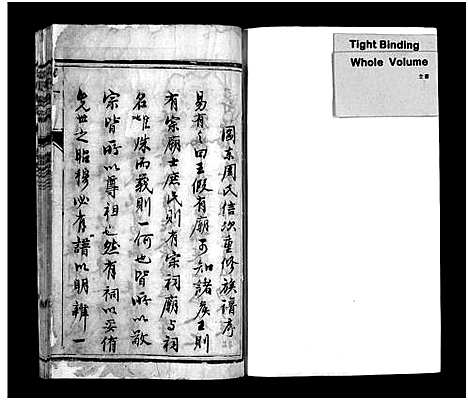 周氏信次重修族譜序
易有之曰王假有廟可知諸侯王則
有宗廟士庶民則有宗祠廟与祠
名雖殊而義則一何也皆所以敬
宗皆所以尊祖也然有祠以妥侑
先世之昭穆必有譜以明辨一
Tight Binding
Whole Volume
全書